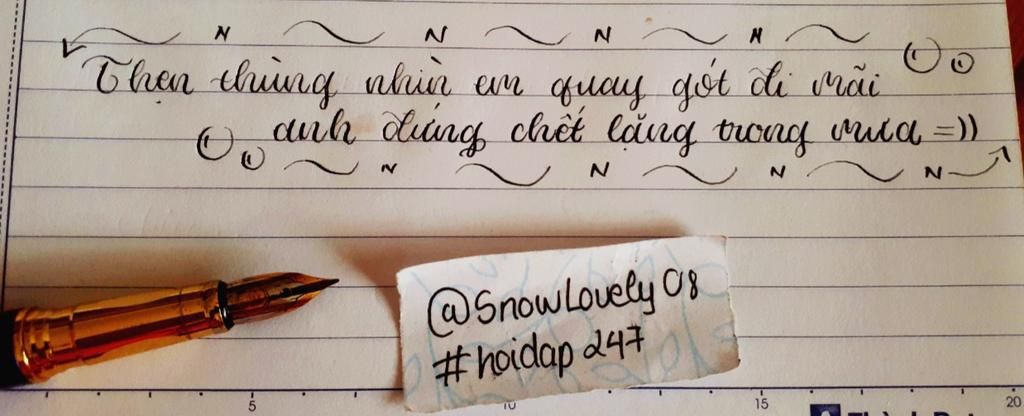 Thẹn thùng nhìn em quay gót đi mãi
anh đứng chết lặng trong mưa =))
@SnowLovely08
#hoidap247
5 10 15 20